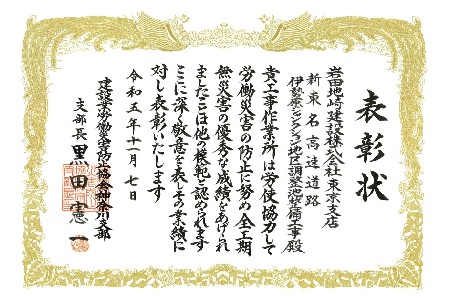 表彰状
岩田地崎建設株式会社東京支店
新東名高速道路
伊勢原ジャンクション地区調整池整備工事殿
貴工事作業所は労使協力して
労働災害の防止に努め全工期
無災害の優秀な成績をあげられ
ましたこれは他の模範と認められます
ここに深く敬意を表しその業績に
対し表彰いたします
令和五年十一月七日
建設業労働災害防止協会神奈川支部
支部長 黒田憲一